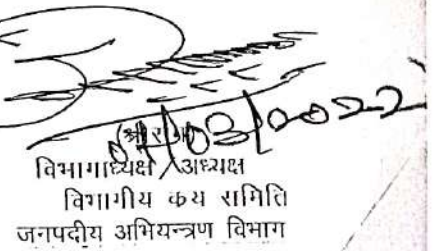 /03/2022
विभागाध्यक्ष / अध्यक्ष
विभागीय कय समिति
जनपदीय अभियन्त्रण विभाग